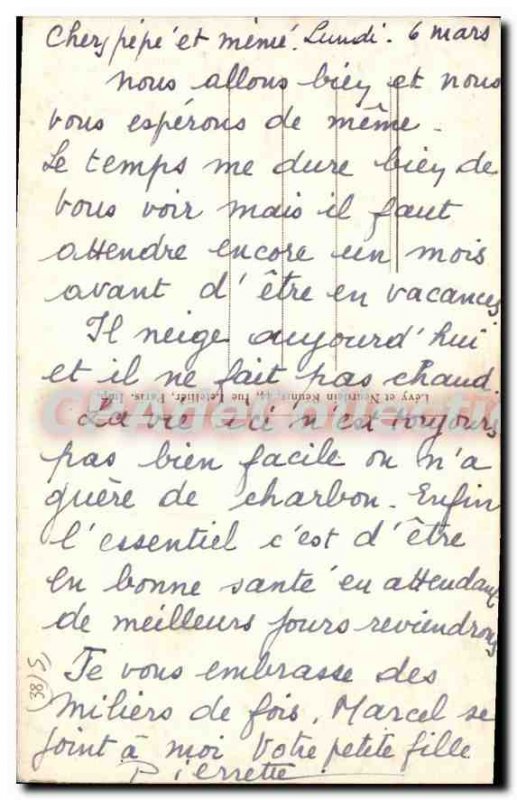 Chers pépé et mémé. Lundi. 6 mars
nous allons bien et nous
vous espérons de même.
Le temps me dure bien de
vous voir mais il faut
attendre encore un mois
avant d'être en vacances
Il neige aujourd'hui
et il ne fait pas chaud.
Lévy et Neurdein Réunis, 44, rue Letellier, Paris. Imp.
La vie ici n'est toujours
pas bien facile on n'a
guère de charbon. Enfin
l'essentiel c'est d'être
en bonne santé en attendant
de meilleurs jours reviendrons
Je vous embrasse des
miliers de fois. Marcel se
joint à moi Votre petite fille
Pierrette
(38) S,